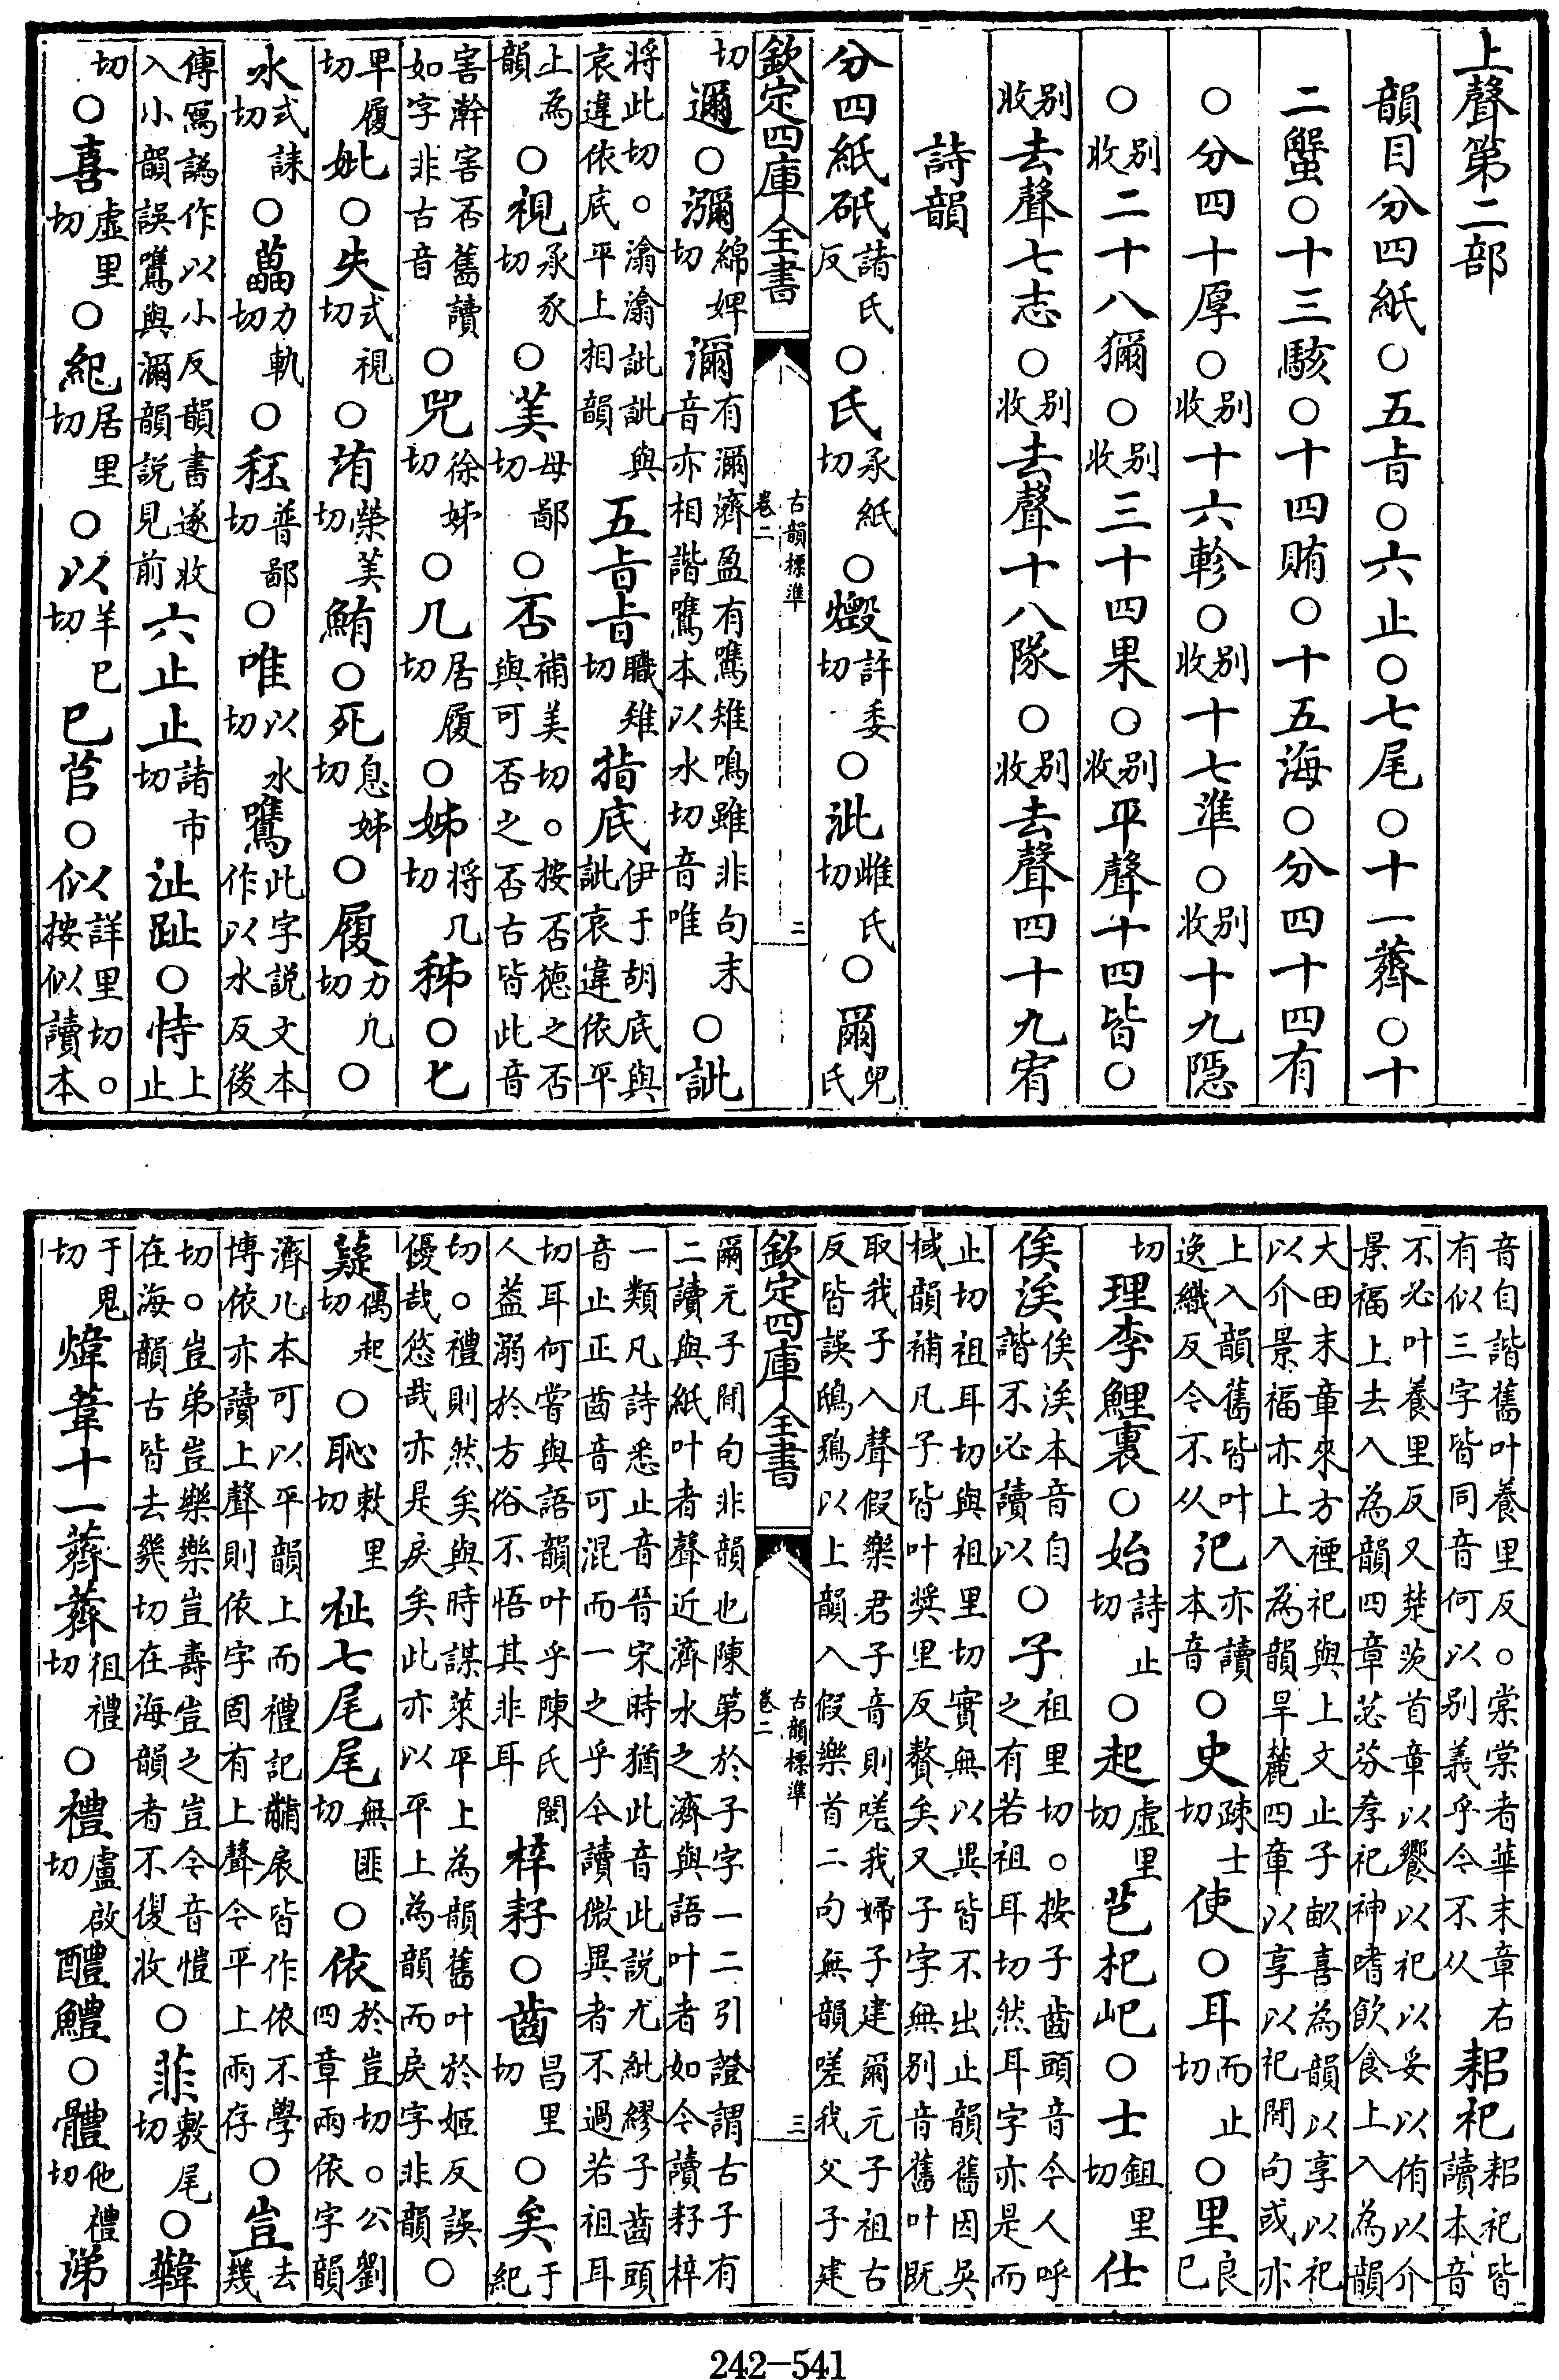 上聲第二部
韻目分四紙○五旨○六止○七尾○十一薺○十
二蟹○十三駭○十四賄○十五海○分四十四有
○分四十厚○別收十六軫○別收十七準○別收十九隱
○別收二十八獮○別收三十四果○別收平聲十四皆○
別收去聲七志○別收去聲十八隊○別收去聲四十九宥
詩韻
分四紙砥諸氏反○氏承紙切○燬許委切○泚雌氏切○爾兒氏
欽定四庫全書 古韻標準 卷二 二
切邇○瀰綿婢切濔有瀰濟盈有鷕雉鳴雖非句末音亦相諧鷕本以水切音唯○訿
將此切。潝潝訿訿與哀違依底平上相韻五旨旨職雉切指底伊于胡底與訿哀違依平
止為韻○視承豕切○美母鄙切○否補美切。按否德之否與可否之否古皆此音
害澣害否舊讀如字非古音○兕徐姊切○几居履切○姊將几切秭○匕
卑履切妣○矢式視切○洧榮美切鮪○死息姊切○履力几切○
水式誄切○藟力軌切○秠普鄙切○唯以水切鷕此字説文本作以水反後
傳寫譌作以小反韻書遂收入小韻誤鷕與瀰韻説見前六止止諸市切沚趾○恃上止
切○喜虛里切○紀居里切○以羊巳切巳苢○似詳里切。按似讀本
音自諧舊叶養里反。棠棠者華末章右有似三字皆同音何以別義乎今不从耜祀耜祀皆讀本音
不必叶養里反又楚茨首章以饗以祀以妥以侑以介景福上去入為韻四章苾芬孝祀神嗜飲食上入為韻
大田末章來方禋祀與上文止子畝喜為韻以享以祀以介景福亦上入為韻旱麓四章以享以祀間句或亦
上入韻舊皆叶逸織反今不从汜亦讀本音○史疎士切使○耳而止切○里良巳
切理李鯉裏○始詩止切○起虛里切芑杞屺○士鉏里切仕
俟涘俟涘本音自諧不必讀以○子祖里切。按子齒頭音今人呼之有若祖耳切然耳字亦是而
止切祖耳切與祖里切實無以異皆不出止韻舊因吳棫韻補凡子皆叶奬里反贅矣又子字無別音舊叶既
取我子入聲假樂君子音則嗟我婦子建爾元子祖古反皆誤鴟鴞以上韻入假樂首二句無韻嗟我父子建
爾元子間句非韻也陳第於子字一二引證謂古子有二讀與紙叶者聲近濟水之濟與語叶者如今讀籽梓
一類凡詩悉止音晉宋時猶此音此説尤紕繆子齒頭音止正齒音可混而一之乎今讀微異者不過若祖耳
切耳何嘗與語韻叶乎陳氏閩人蓋溺於方俗不悟其非耳梓耔○齒昌里切○矣于紀
切。禮則然矣與時謀萊平上為韻舊叶於姬反誤優哉悠哉亦是戾矣此亦以平上為韻而戾字非韻○
薿偶起切○恥敕里切祉七尾尾無匪切○依於豈切。公劉四章兩依字韻
濟几本可以平韻上而禮記黼扆皆作依不學博依亦讀上聲則依字固有上聲今平上兩存○豈去幾
切。豈弟豈樂樂豈壽豈之豈今音愷在海韻古皆去幾切在海韻者不復收○菲敷尾切○韡
于鬼切煒葦十一薺薺徂禮切○禮盧啟切醴鱧○體他禮切涕
242-541